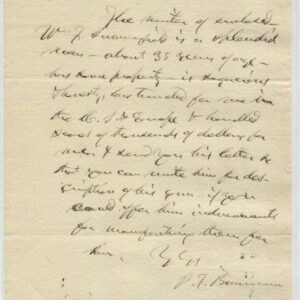 The writer of enclosed
Wm J. is a splendid
man - about 35 years of age -
has some property - is
& honest, has traveled for me in
the U.S. & Europe & handled
of thousands of dollars for
me. I send you his letter so
that you can write him for des-
cription of his gun - if you
could offer him inducements
for manufacturing them for
him.
P. T. Barnum